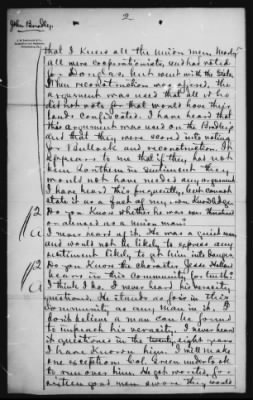 John Bradley.
2
that I knew all the Union men. Nearly
all were cooperationists, and has voted
for Douglas, but went with the State.
When reconstruction was offered, the
argument was used that all who
did not vote for that would have their
lands confiscated. I have heard that
this argument was used on the Bradleys
and that they were scared into voting
for Bullock and reconstruction. It
appears to me that if they has not
been Southern in sentiment they
would not have needed any argument
I have heard this frequently, but cannot
state it as a fact of my own knowledge.
Do you know whether he was ever threatened
or abused as a Union man?
I never heard of it. He was a quiet man
and would not be likely to express any
sentiment likely to get him into danger.
Do you know the character Jesse
bears in this community for truth?
I think I do. I never heard his veracity
questioned. He stands as fair in this
community as any man in it. I
don't believe a man can be found
to impeach his veracity. I never heard
it questioned in the twenty eight years
I have known him. I will make
one exception. Col. Green undertook
to run over him. He got worsted, for
sixteen good men swore they would